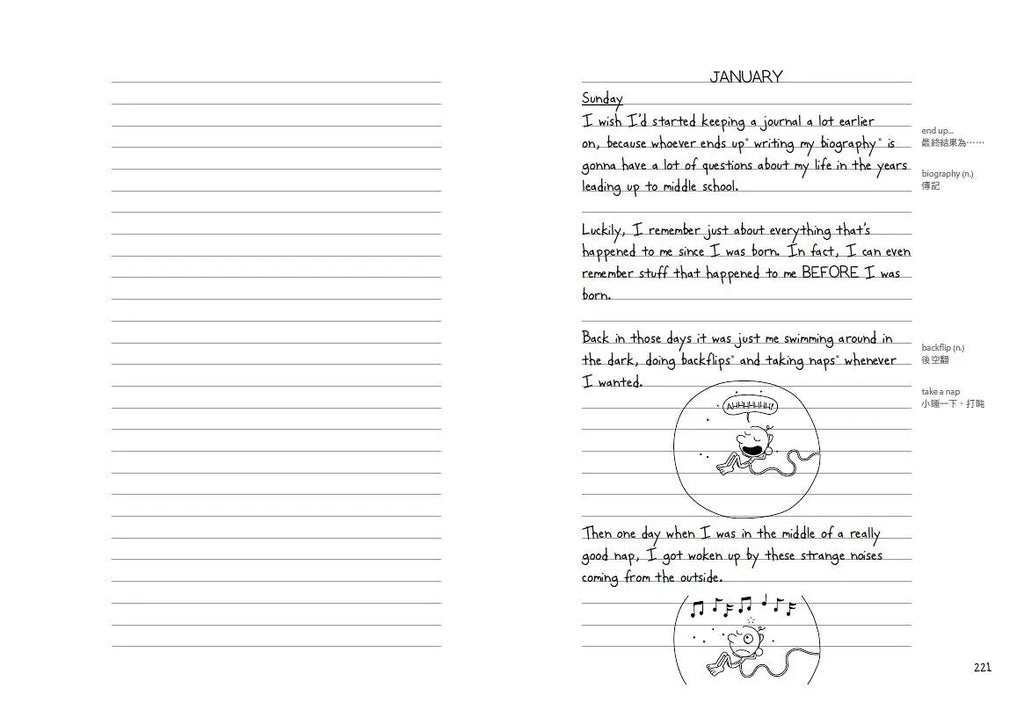 JANUARY
Sunday
I wish I'd started keeping a journal a lot earlier
on, because whoever ends up* writing my biography* is
gonna have a lot of questions about my life in the years
leading up to middle school.
Luckily, I remember just about everything that's
happened to me since I was born. In fact, I can even
remember stuff that happened to me BEFORE I was
born.
Back in those days it was just me swimming around in
the dark, doing backflips* and taking naps* whenever
I wanted.
AHHHHHH!
Then one day when I was in the middle of a really
good nap, I got woken up by these strange noises
coming from the outside.
end up...
最終結果為……
biography (n.)
傳記
backflip (n.)
後空翻
take a nap
小睡一下、打盹
221